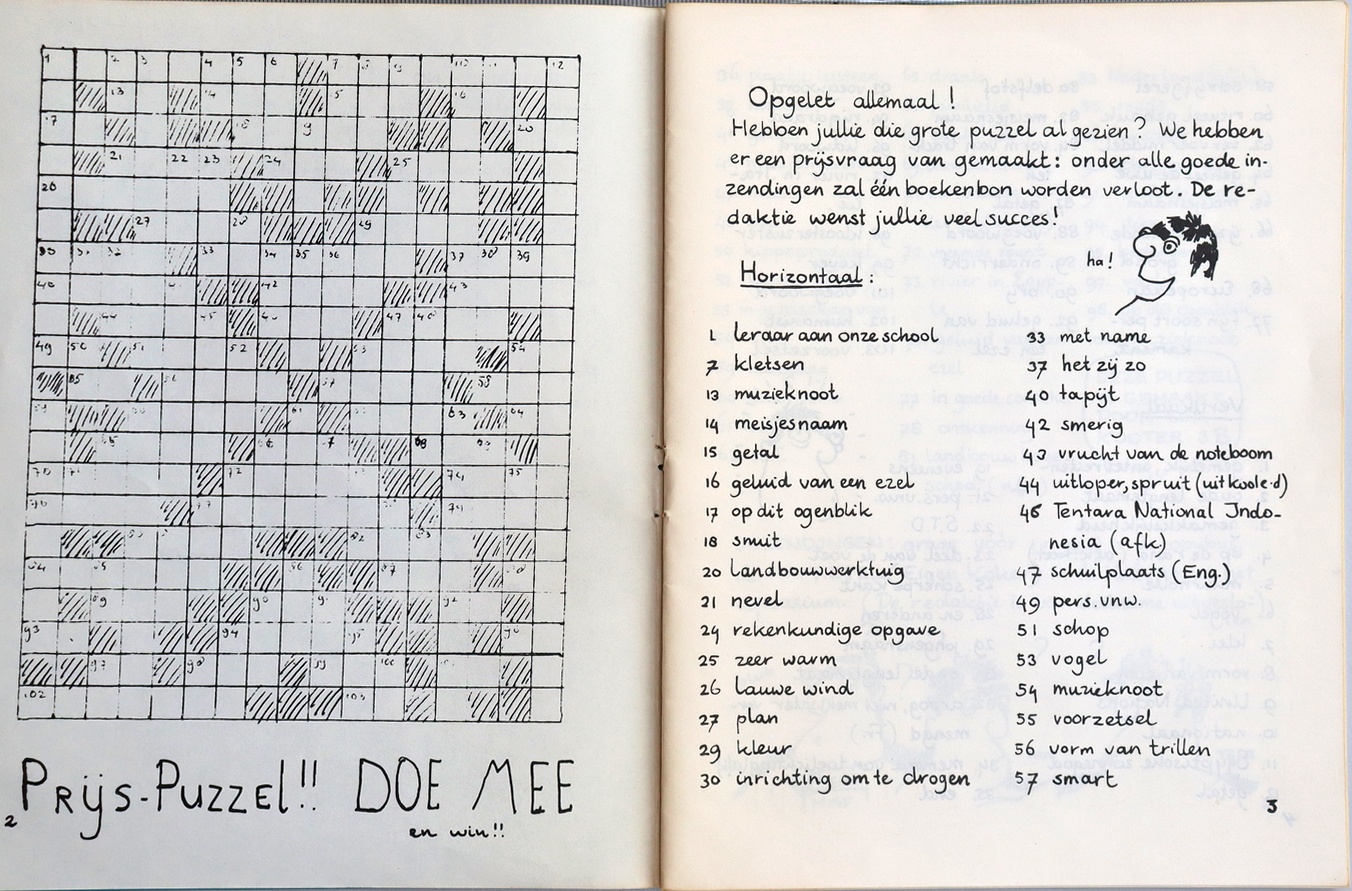 Prijs-Puzzel!! DOE MEE
en win!!
2
Opgelet allemaal !
Hebben jullie die grote puzzel al gezien ? We hebben
er een prijsvraag van gemaakt: onder alle goede in-
zendingen zal één boekenbon worden verloot. De re-
daktie wenst jullie veel succes!
ha!
Horizontaal :
1 leraar aan onze school
7 kletsen
13 muzieknoot
14 meisjesnaam
15 getal
16 geluid van een ezel
17 op dit ogenblik
18 smuit
20 landbouwwerktuig
21 nevel
24 rekenkundige opgave
25 zeer warm
26 lauwe wind
27 plan
29 kleur
30 inrichting om te drogen
33 met name
37 het zij zo
40 tapijt
42 smerig
43 vrucht van de noteboom
44 uitloper, spruit (uit kool e.d)
46 Tentara National Indo-
nesia (afk)
47 schuilplaats (Eng.)
49 pers. vnw.
51 schop
53 vogel
54 muzieknoot
55 voorzetsel
56 vorm van trillen
57 smart
3